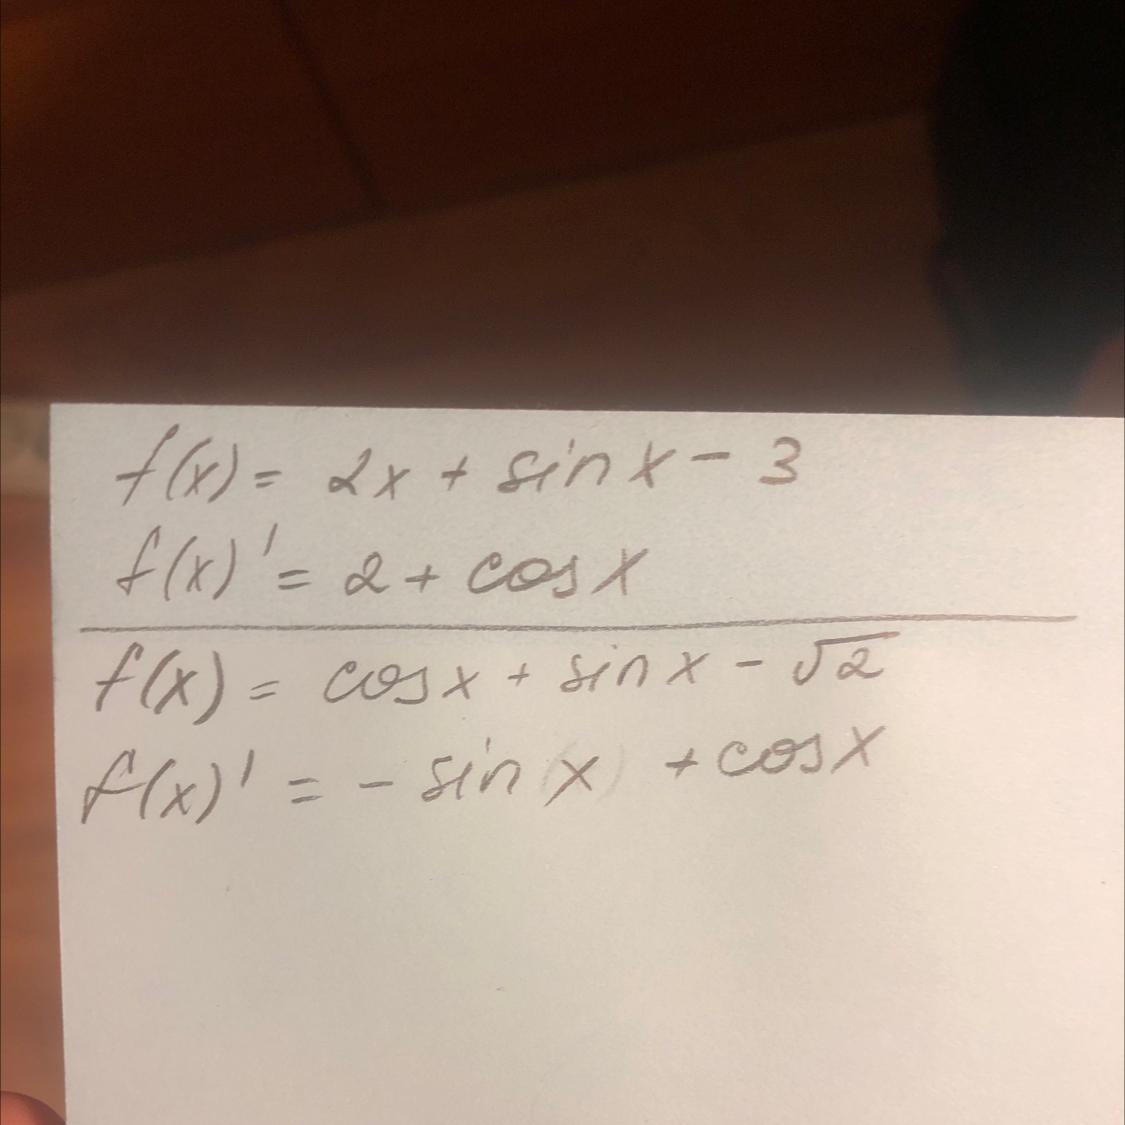 f(x) = 2x + sin x - 3
f(x)' = 2 + cos x
f(x) = cos x + sin x - √2
f(x)' = - sin (x) + cos x